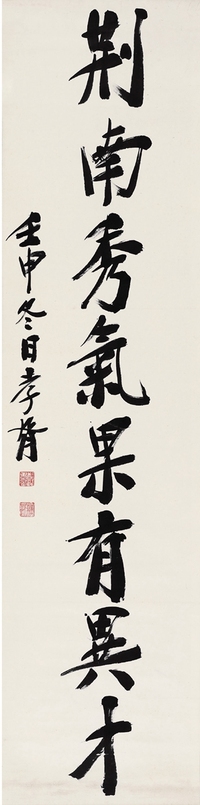 荆南秀氣果有異才
壬申冬日孝胥